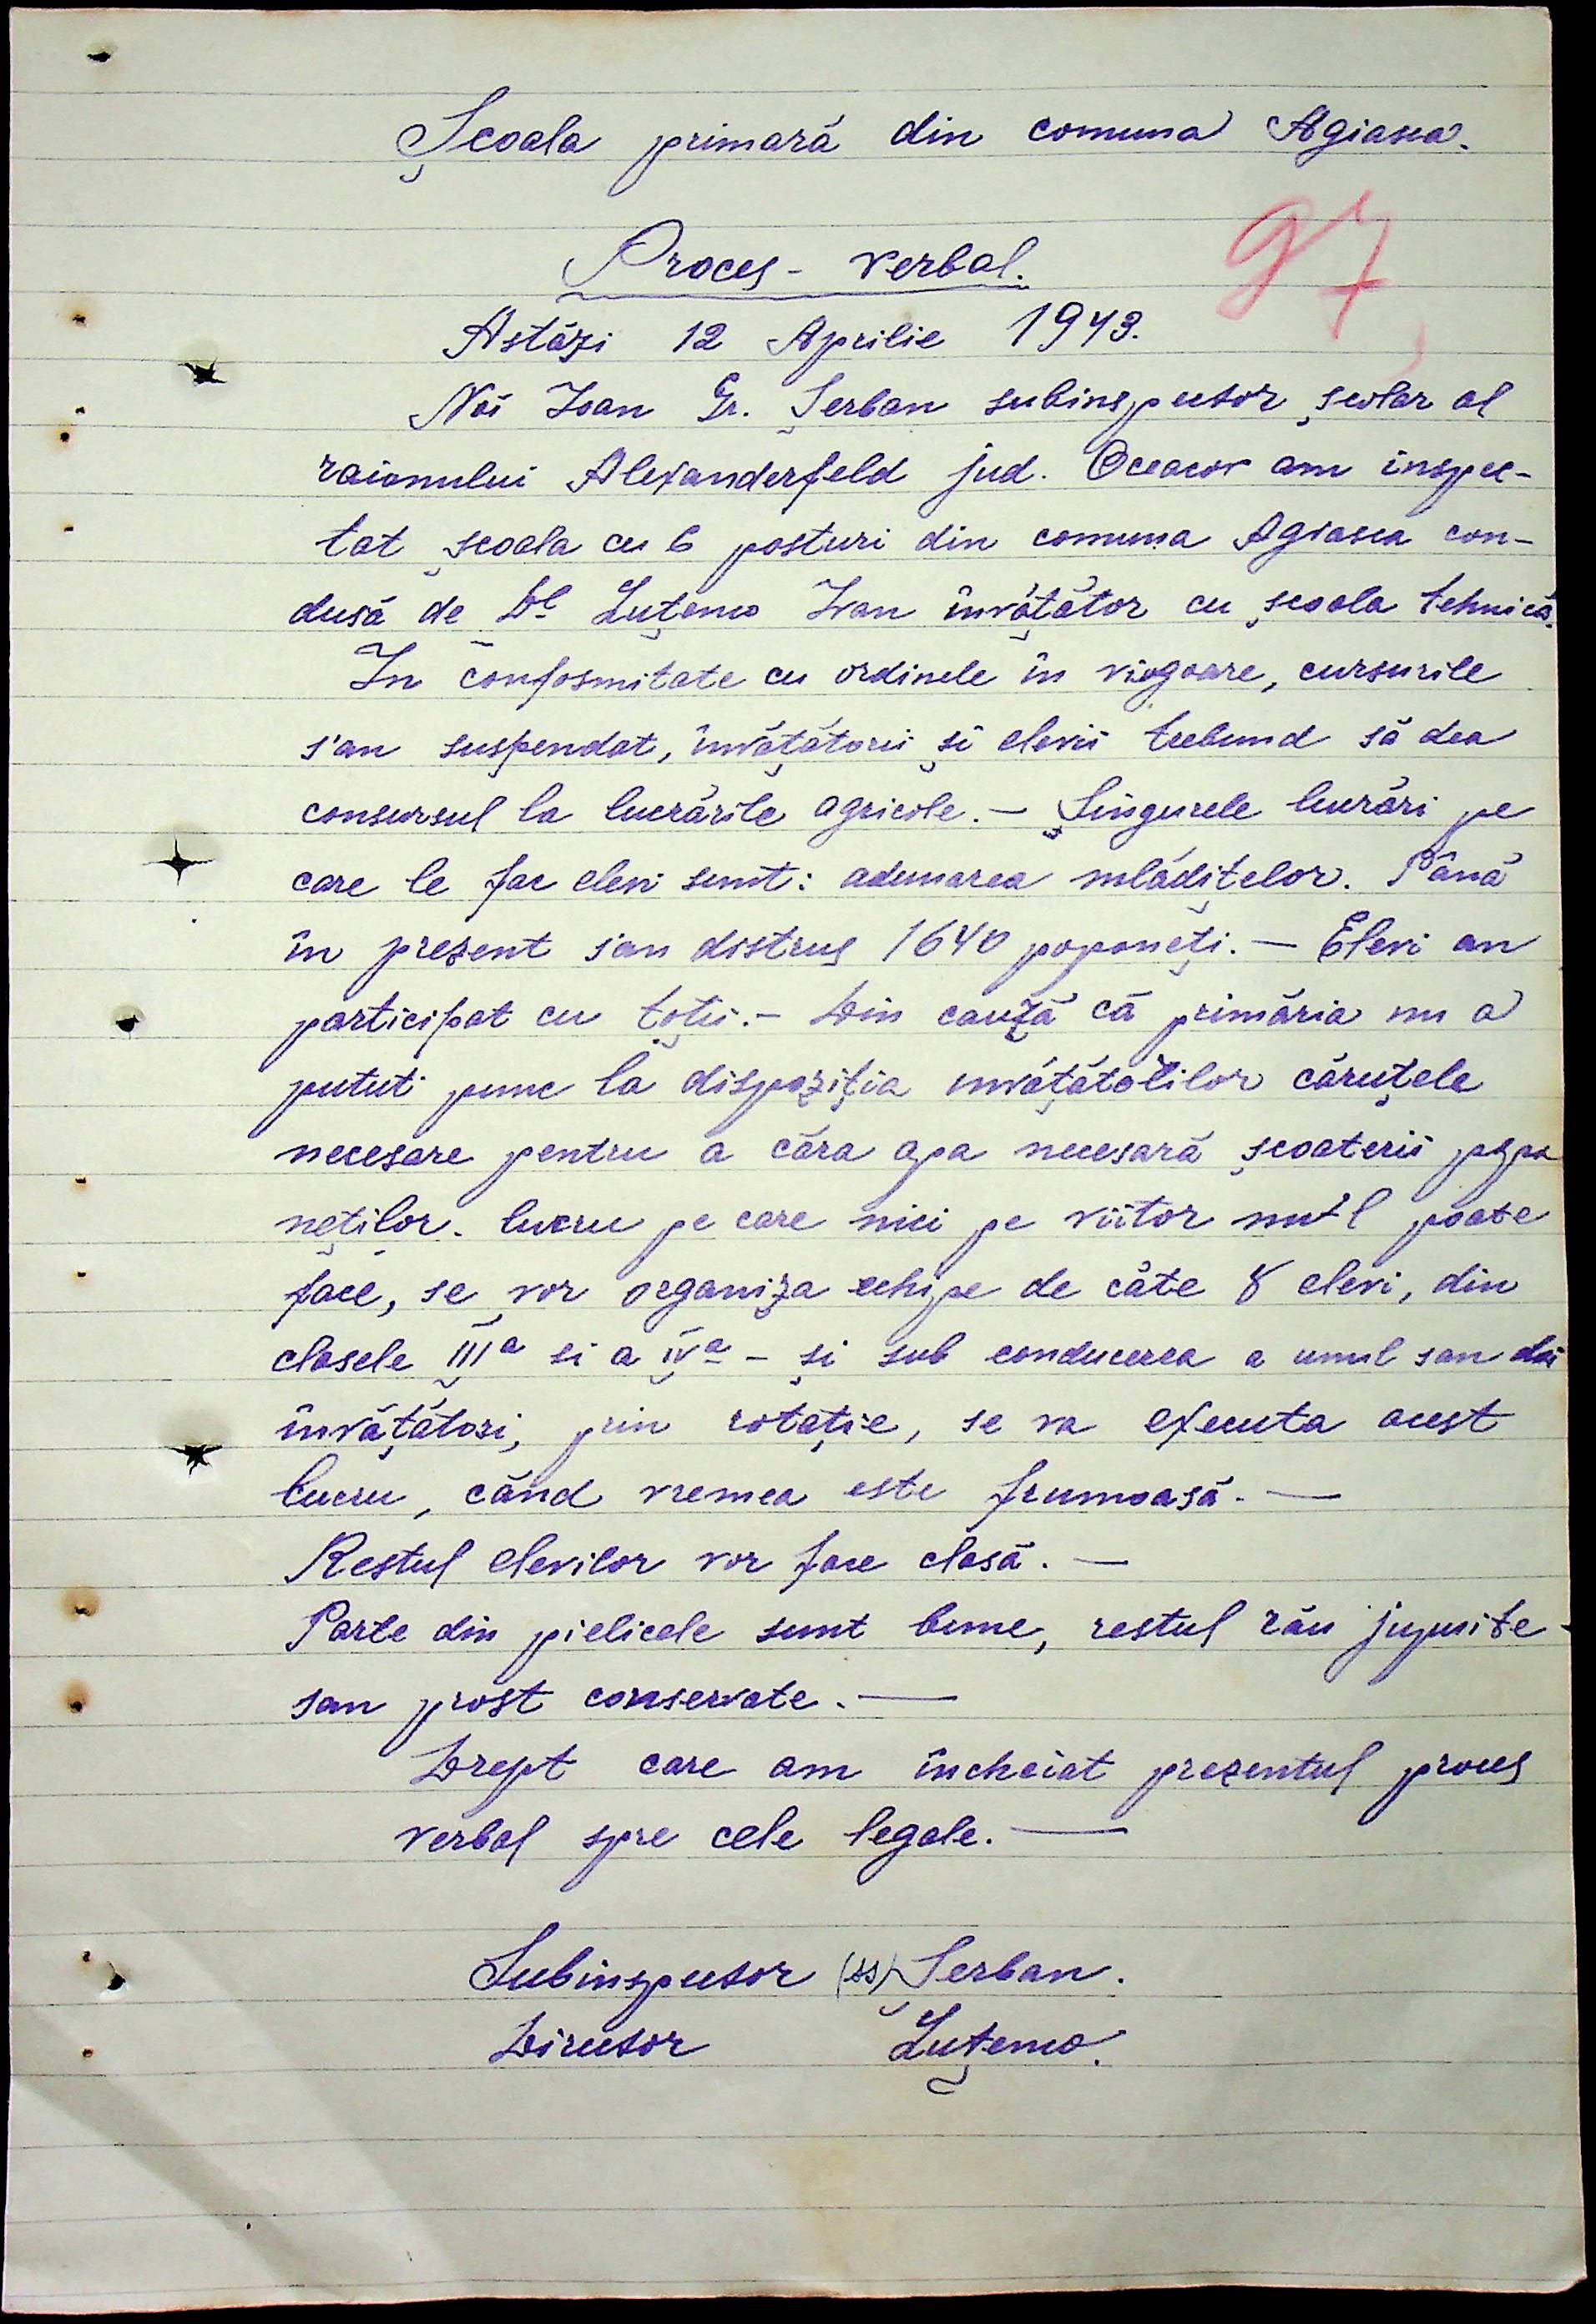 Școala primară din comuna Agiasca.
97
Proces-verbal.
Astăzi 12 Aprilie 1943.
Noi Ioan Gr. Șerban subinspector școlar al
raionului Alexanderfeld jud. Oceacov am inspec-
tat școala cu 6 posturi din comuna Agiasca con-
dusă de Dl Luțemco Ivan învățător cu școala tehnică.
In conformitate cu ordinele în viogoare, cursurile
s'au suspendat, învățătorii și elevii trebund să dea
consursul la lucrările agricole. — Singurele lucrări pe
care le fac elevi sunt: adunarea mlădițelor. Până
în prezent s'au distrus 1640 poponeți. — Elevi au
participat cu toții. — Din cauză că primăria nu a
putut pune la dispoziția învățătorilor căruțele
necesare pentru a căra apa necesară scoaterii popo
neților. lucru pe care nici pe viitor nu-l poate
face, se vor organiza echipe de câte 8 elevi, din
clasele IIIa si a IVa - și sub conducerea a unul sau doi
învățători, prin rotație, se va executa acest
lucru, când vremea este frumoasă. —
Restul elevilor vor face clasă. —
Parte din pielicele sunt bune, restul rău jupuite
sau prost conservate. —
Drept care am încheiat prezentul proces
verbal spre cele legale. —
Subinspector (ss) Șerban.
Director Luțemco.